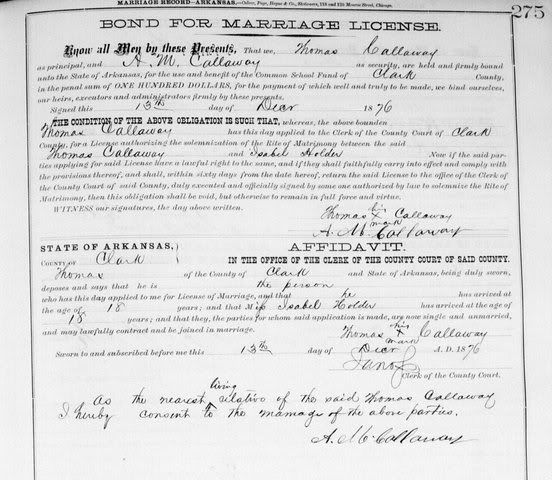 MARRIAGE RECORD—ARKANSAS.—Culver, Page, Hoyne & Co., Stationers, 118 and 120 Monroe Street, Chicago.
275
BOND FOR MARRIAGE LICENSE.
Know all Men by these Presents, That we, Thomas Callaway
as principal, and A. M. Callaway as security, are held and firmly bound
unto the State of Arkansas, for the use and benefit of the Common School Fund of Clark County,
in the penal sum of ONE HUNDRED DOLLARS, for the payment of which well and truly to be made, we bind ourselves,
our heirs, executors and administrators firmly by these presents.
Signed this 13th day of Decr 1876
THE CONDITION OF THE ABOVE OBLIGATION IS SUCH THAT, whereas, the above bounden
Thomas Callaway has this day applied to the Clerk of the County Court of Clark
County, for a License authorizing the solemnization of the Rite of Matrimony between the said
Thomas Callaway and Isabel Holder Now if the said par-
ties applying for said License have a lawful right to the same, and if they shall faithfully carry into effect and comply with
the provisions thereof, and shall, within sixty days from the date hereof, return the said License to the office of the Clerk of
the County Court of said County, duly executed and officially signed by some one authorized by law to solemnize the Rite of
Matrimony, then this obligation shall be void, but otherwise to remain in full force and virtue.
WITNESS our signatures, the day above written.
Thomas his X mark Callaway
A. M. Callaway
STATE OF ARKANSAS,
COUNTY OF Clark
AFFIDAVIT.
IN THE OFFICE OF THE CLERK OF THE COUNTY COURT OF SAID COUNTY.
Thomas of the County of Clark and State of Arkansas, being duly sworn,
deposes and says that he is the person
who has this day applied to me for License of Marriage, and that he has arrived at
the age of 18 years; and that Miss Isabel Holder has arrived at the age of
18 years; and that they, the parties for whom said application is made, are now single and unmarried,
and may lawfully contract and be joined in marriage.
Thomas his X mark Callaway
Sworn to and subscribed before me this 13th day of Decr A. D. 1876
Clerk of the County Court.
As the nearest living relative of the said Thomas Callaway
I hereby consent to the marriage of the above parties.
A. M. Callaway